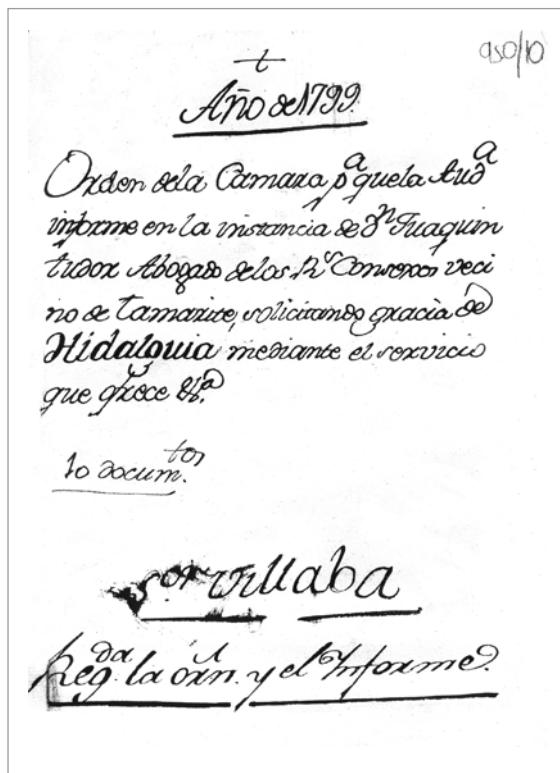 950/10
t
Año de 1799.
Orden de la Camara pª que la Audª
informe en la instancia de Dn Juaquin
tudor Abogado de los Rs Consexos veci
no de tamarite, solicitando gracia de
Hidalguia mediante el servicio
que ofrece &ª
10 documtos.
Sor Villaba
Regda la orn. y el Informe.